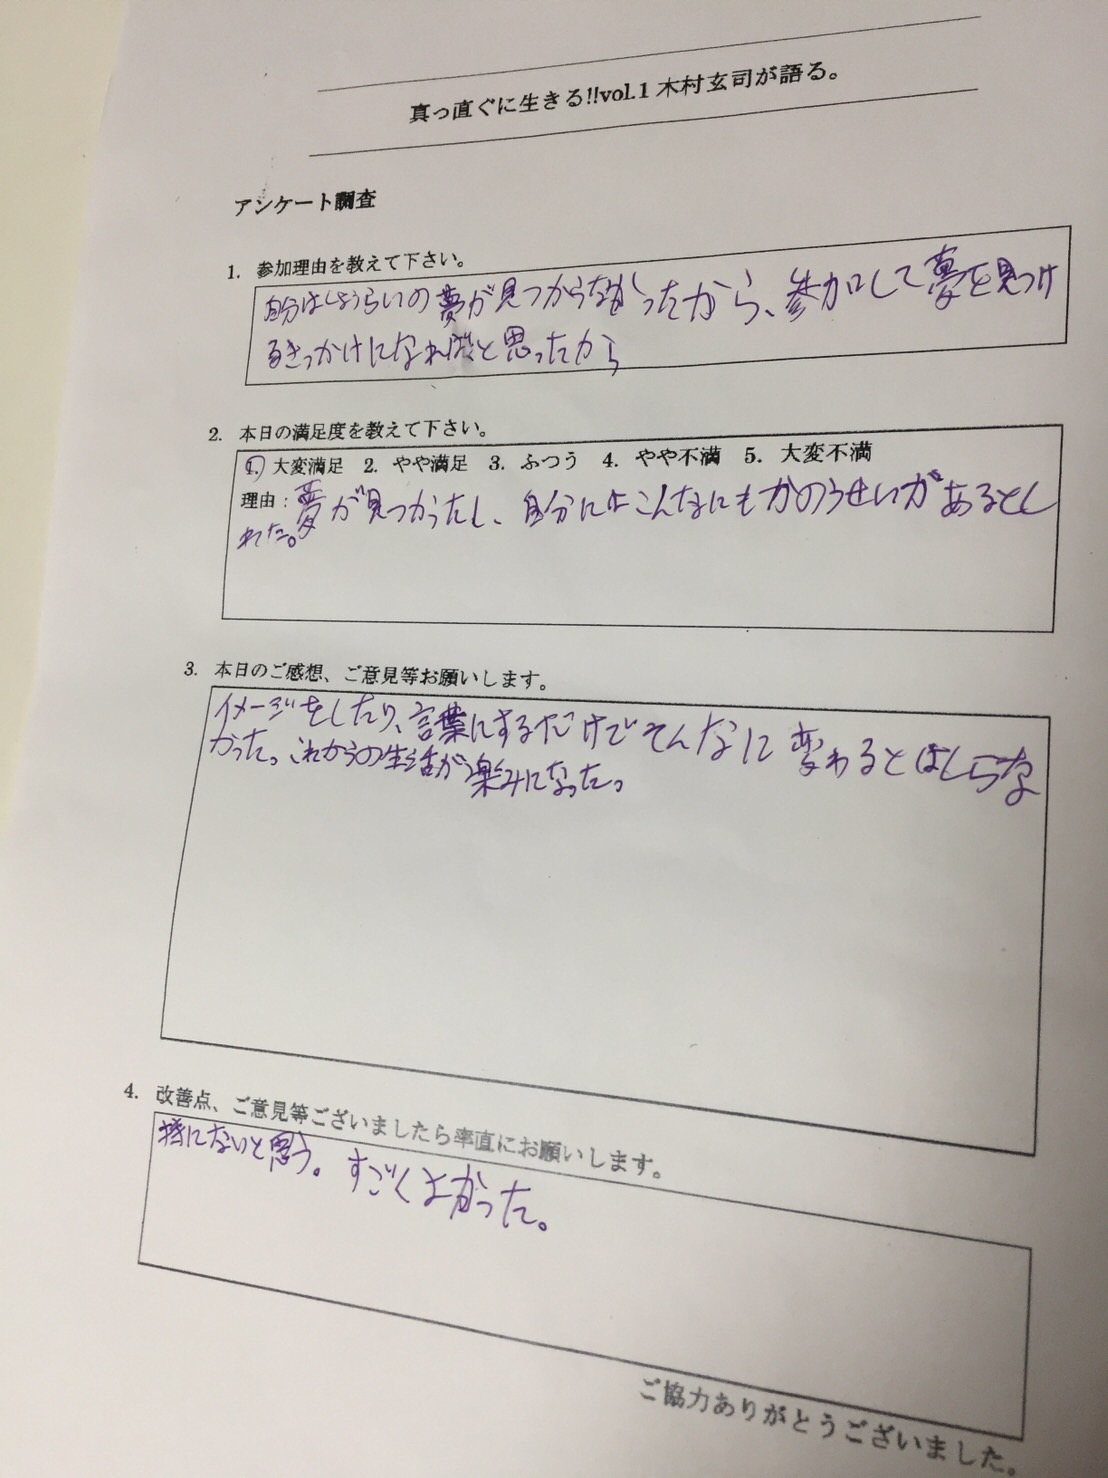 真っ直ぐに生きる!!vol.1 木村玄司が語る。
アンケート調査
1. 参加理由を教えて下さい。
自分はしょうらいの夢が見つからなかったから、参加して夢を見つけ
るきっかけになればと思ったから
2. 本日の満足度を教えて下さい。
1. 大変満足 2. やや満足 3. ふつう 4. やや不満 5. 大変不満
理由：夢が見つかったし、自分にはこんなにもかのうせいがあるとし
れた。
3. 本日のご感想、ご意見等お願いします。
イメージをしたり、言葉にするだけでそんなに変わるとはしらな
かった。これからの生活が楽みになった。
4. 改善点、ご意見等ございましたら率直にお願いします。
特にないと思う。すごくよかった。
ご協力ありがとうございました。